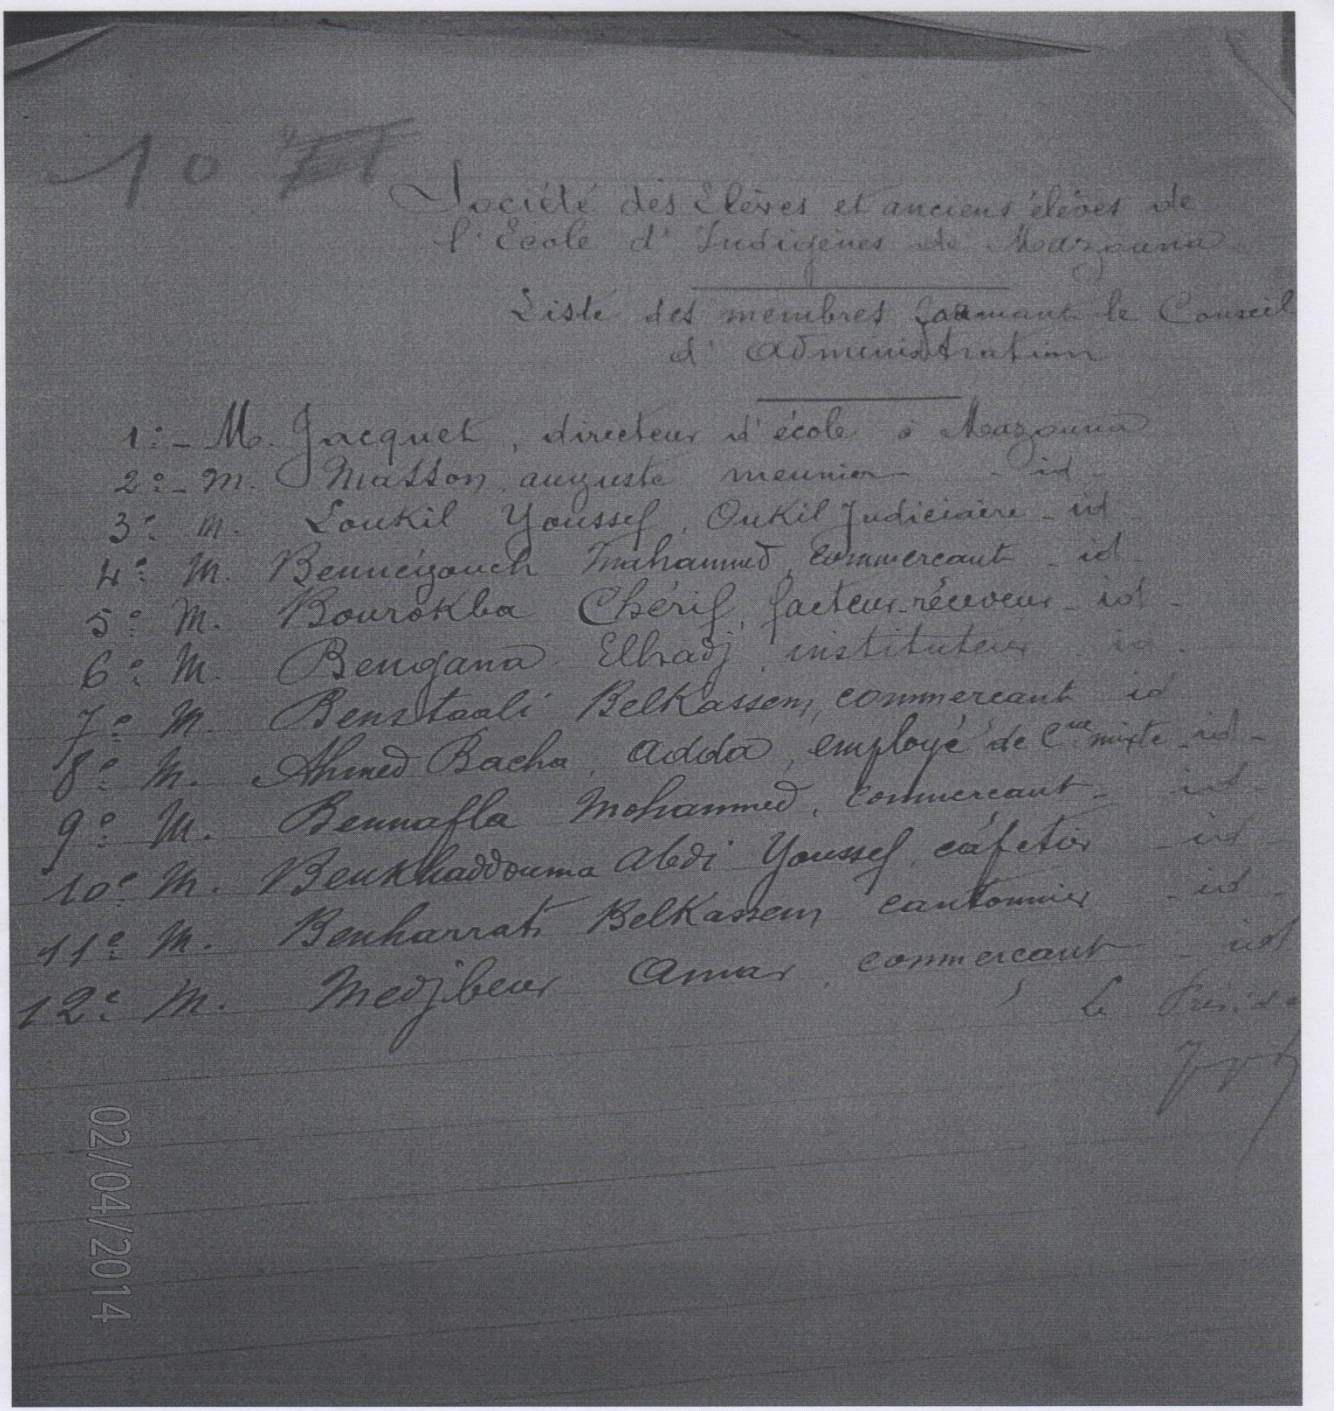 10
Société des élèves et anciens élèves de
l'École d'Indigènes de Mazouna
Liste des membres formant le Conseil
d'Administration
1º - M. Jacquet, directeur d'école à Mazouna
2º - M. Masson auguste meunier - id -
3º M. Loukil Youssef, Oukil Judiciaire - id
4º M. Bennégouch Mahammed, commercant - id
5º M. Bourokba Chérif, facteur-receveur - id -
6º M. Bengana Elhadj, instituteur id.
7º M. Benstaali BelKassem, commercant id
8º M. Ahmed Bacha, adda, employé de Cne mixte - id -
9º M. Bennafla Mohammed, commercant - id -
10º M. Benkhaddouma Abdi Youssef, cafetier - id
11º M. Benharrat BelKassem cantonnier - id -
12º M. Medjbeur Amar, commercant - id
Le Préside
02/04/2014